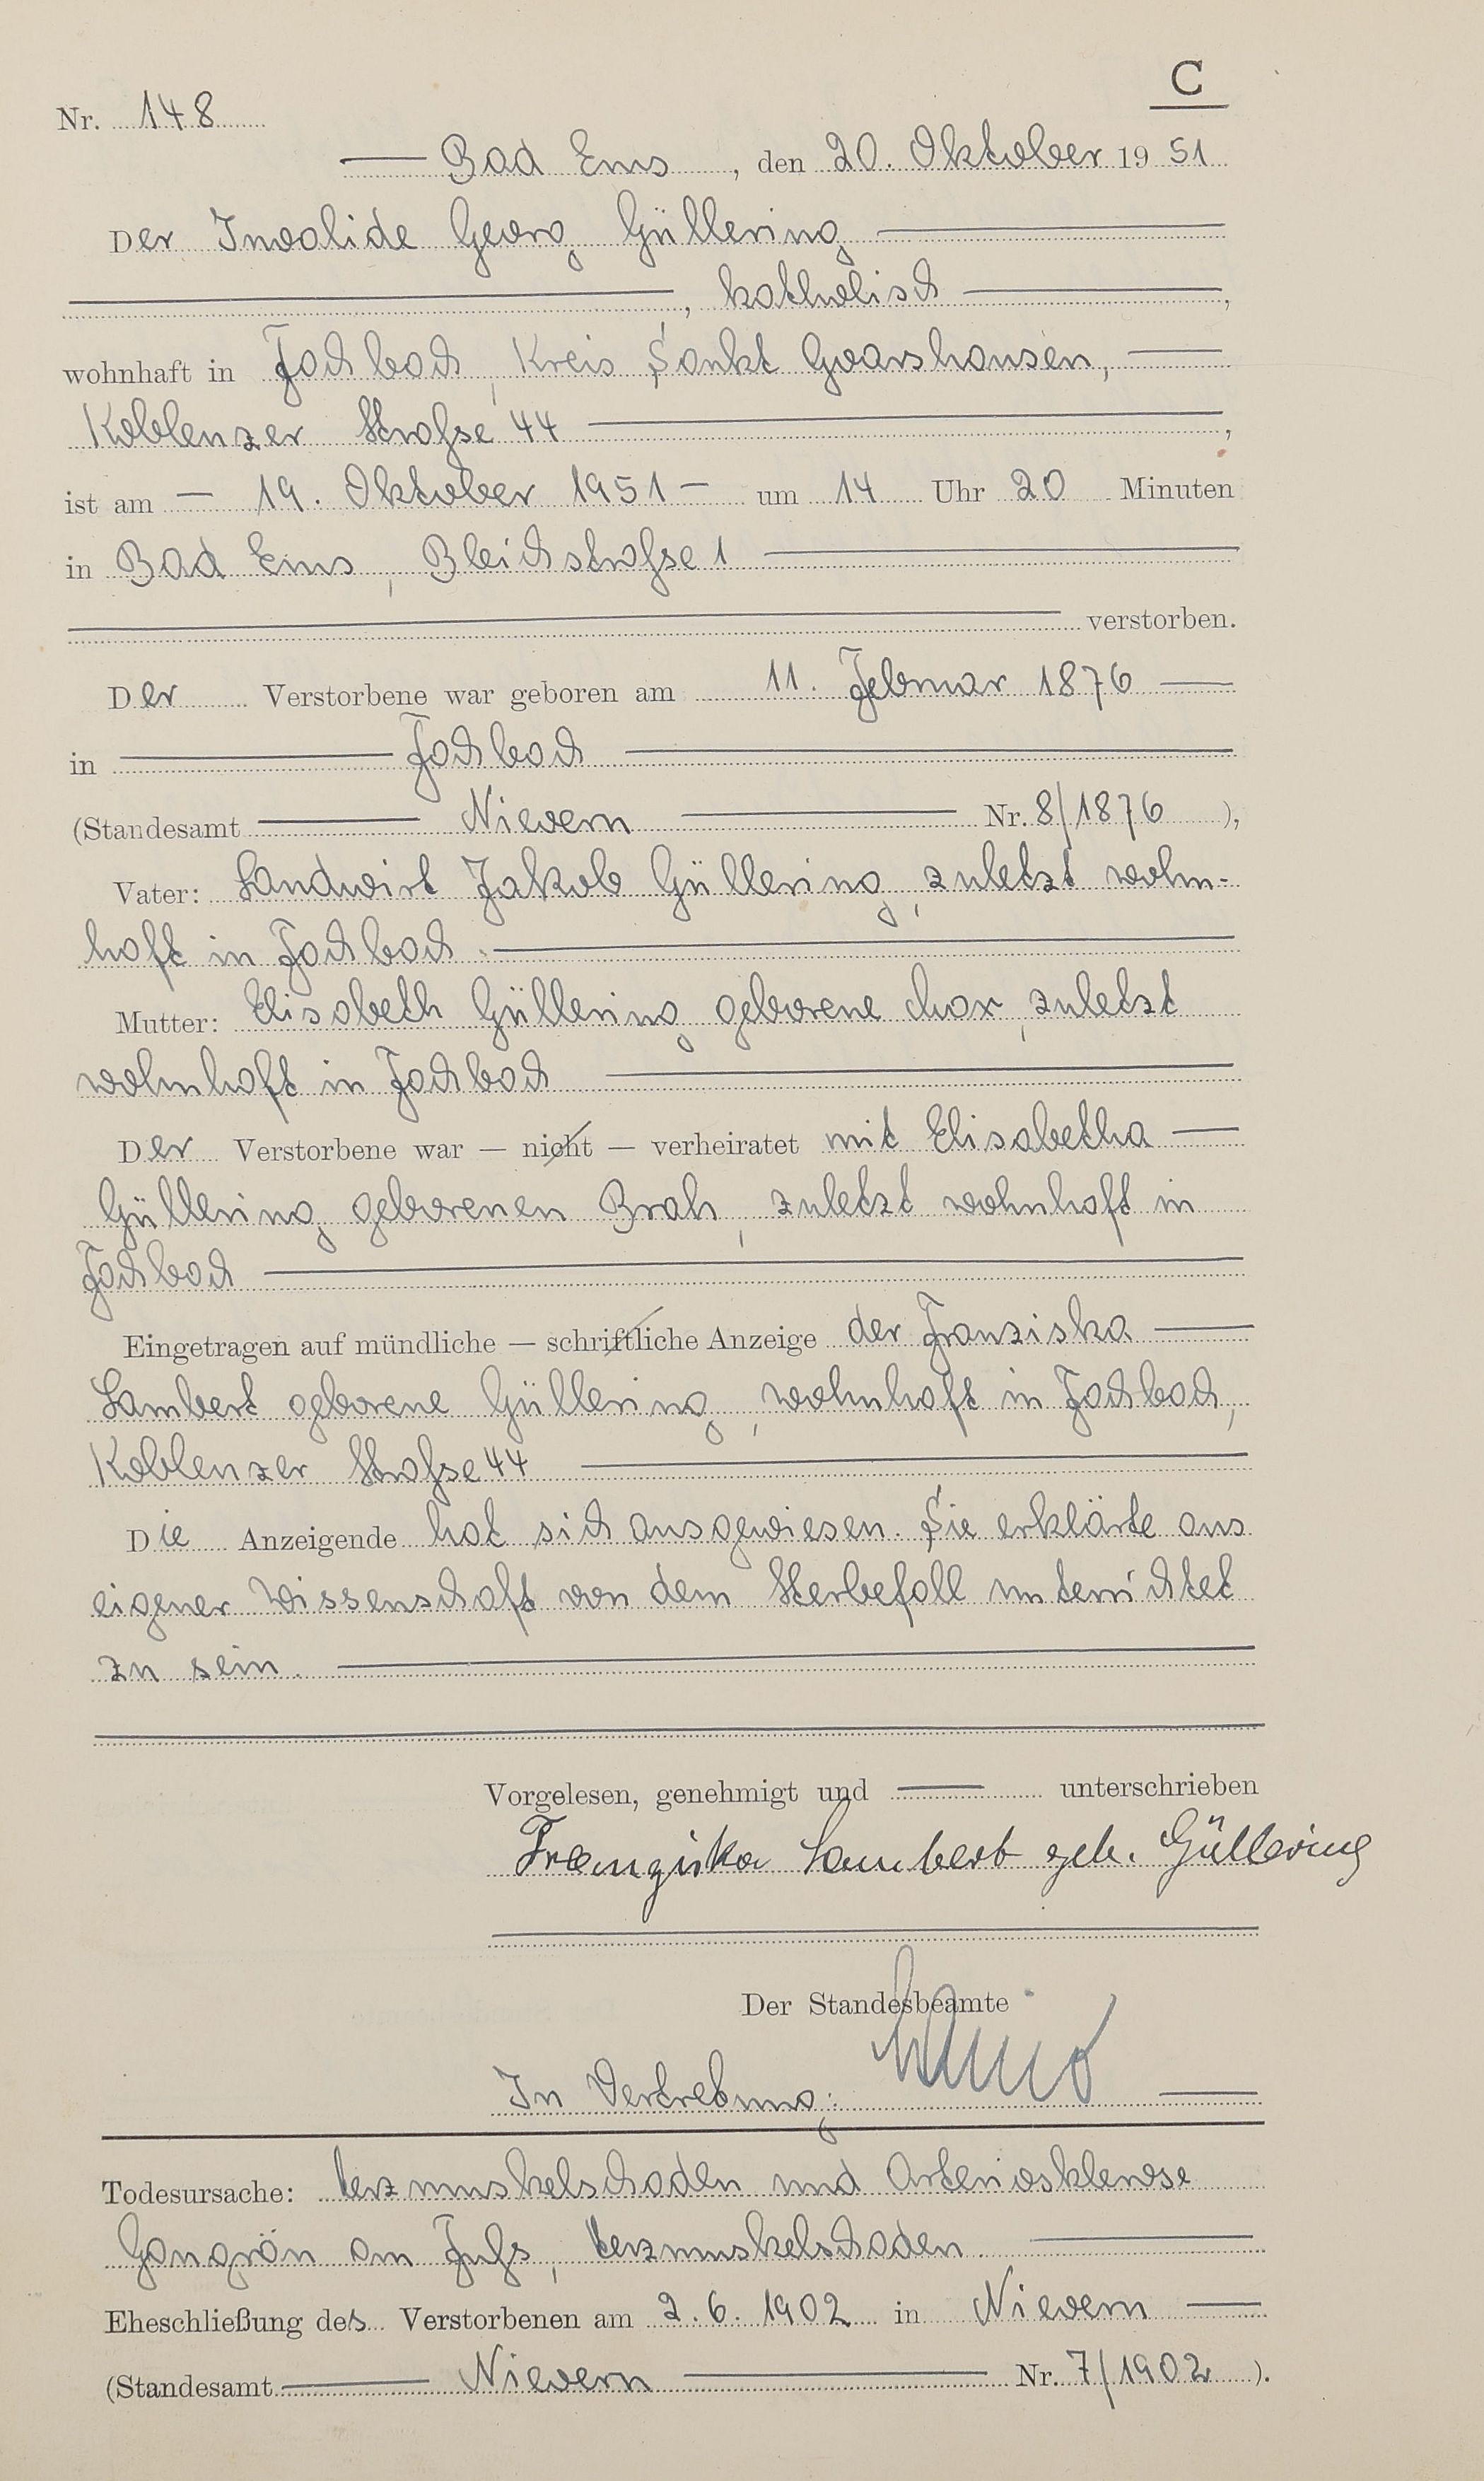 C
Nr. 148
Bad Ems, den 20. Oktober 1951
Der Invalide Georg Güllering
, katholisch,
wohnhaft in Fachbach, Kreis Sankt Goarshausen,
Koblenzer Straße 44,
ist am — 19. Oktober 1951 — um 14 Uhr 20 Minuten
in Bad Ems, Bleichstraße 1
verstorben.
Der Verstorbene war geboren am 11. Februar 1876
in Fachbach
(Standesamt Nievern Nr. 8/1876),
Vater: Landwirt Jakob Güllering, zuletzt wohn-
haft in Fachbach.
Mutter: Elisabeth Güllering geborene, zuletzt
wohnhaft in Fachbach
Der Verstorbene war — nicht — verheiratet mit Elisabetha
Güllering geborenen Brah, zuletzt wohnhaft in
Fachbach
Eingetragen auf mündliche — schriftliche Anzeige der Franziska
Lambert geborene Güllering, wohnhaft in Fachbach,
Koblenzer Straße 44
Die Anzeigende hat sich ausgewiesen. Sie erklärte aus
eigener Wissenschaft von dem Sterbefall unterrichtet
zu sein.
Vorgelesen, genehmigt und unterschrieben
Franziska Lambert geb. Güllering
Der Standesbeamte
In Vertretung:
Todesursache: Herzmuskelschaden und Arteriosklerose
Gangrän am Fuß, Herzmuskelschaden.
Eheschließung des Verstorbenen am 2.6.1902 in Nievern
(Standesamt Nievern Nr. 7/1902).